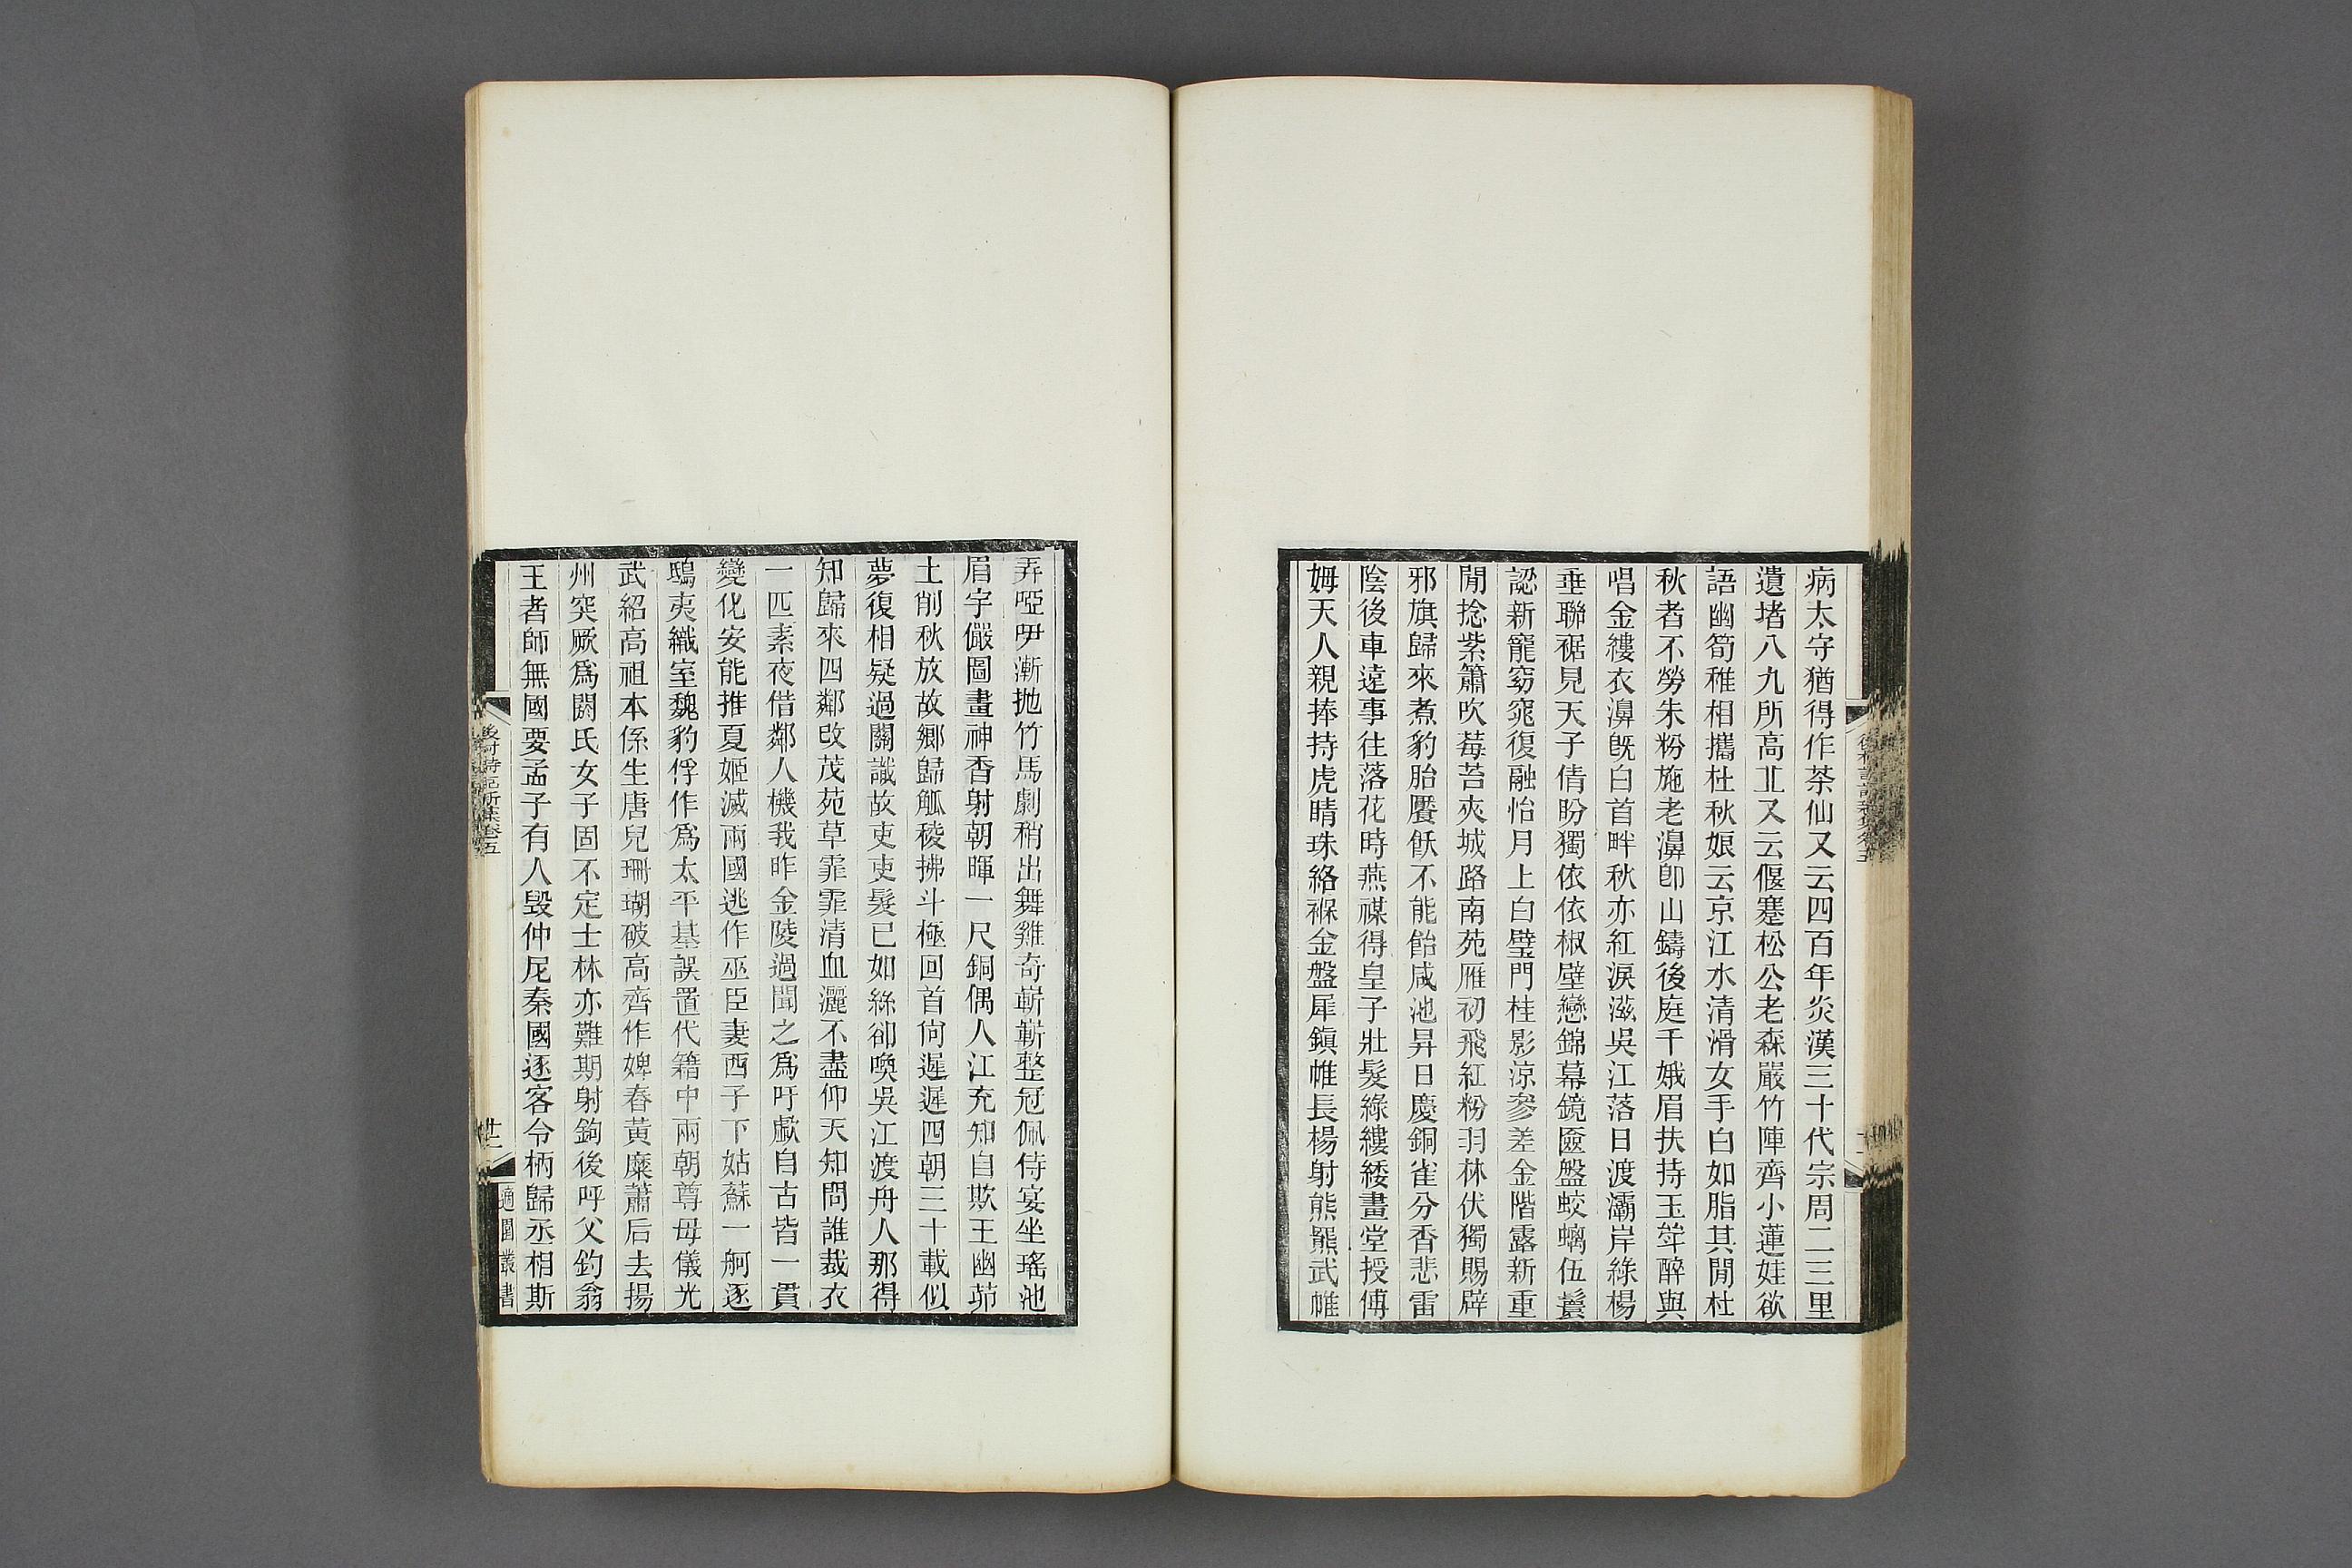 病太守猶得作茶仙又云四百年炎漢三十代宗周二三里
遺堵八九所高丘又云偃蹇松公老森嚴竹陣齊小蓮娃欲
語幽筍稚相攜杜秋娘云京江水清滑女手白如脂其閒杜
秋者不勞朱粉施老濞卽山鑄後庭千娥眉扶持玉斚醉與
唱金縷衣濞旣白首畔秋亦紅淚滋吳江落日渡灞岸綠楊
垂聯裾見天子倩盼獨依依椒壁戀錦幕鏡匳盤蛟螭伍鬟
認新寵窈窕復融怡月上白璧門桂影涼參差金階露新重
閒捻紫簫吹莓苔夾城路南苑雁初飛紅粉羽林伏獨賜辟
邪旗歸來煮豹胎饜飫不能飴咸池昇日慶銅雀分香悲雷
陰後車遠事往落花時燕禖得皇子壯髮綠縷緌畫堂授傅
姆天人親捧持虎睛珠絡褓金盤犀鎭帷長楊射熊羆武帷
弄啞咿漸拋竹馬劇稍出舞雞奇嶄嶄整冠佩侍宴坐瑤池
眉宇儼圖畫神香射朝暉一尺銅偶人江充知自欺王幽茆
土削秋放故鄉歸觚稜拂斗極回首尙遲遲四朝三十載似
夢復相疑過關讖故吏吏髮已如絲卻喚吳江渡舟人那得
知歸來四鄰改茂苑草霏霏清血灑不盡仰天知問誰裁衣
一匹素夜借鄰人機我昨金陵過聞之爲吁歔自古皆一貫
變化安能推夏姬滅兩國逃作巫臣妻西子下姑蘇一舸逐
鴟夷織室魏豹俘作爲太平基誤置代籍中兩朝尊母儀光
武紹高祖本係生唐兒珊瑚破高齊作婢舂黃糜蕭后去揚
州突厥爲閼氏女子固不定士林亦難期射鉤後呼父釣翁
王者師無國要孟子有人毁仲尼秦國逐客令柄歸丞相斯
後村詩話新集卷五
廿一
適園叢書